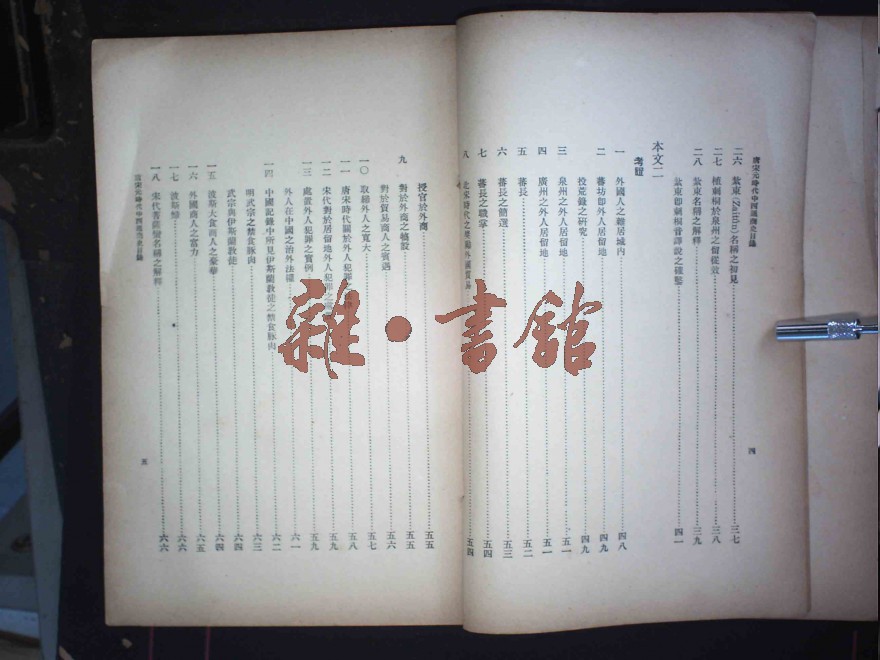 唐宋元時代中西通商史目錄
二六 紮東(Zaitûn)名稱之初見 三七
二七 植刺桐於泉州之留從效 三八
二八 紮東名稱之解釋 三九
紮東即刺桐音譯說之確鑿 四一
本文二
考證
一 外國人之雜居城內 四八
二 蕃坊即外人居留地 四九
投荒錄之研究 四九
三 泉州之外人居留地 五一
四 廣州之外人居留地 五一
五 蕃長 五二
六 蕃長之簡選 五三
七 蕃長之職掌 五四
八 北宋時代之獎勵外國貿易 五四
四
授官於外商 五五
九 對於外商之犒設 五五
對於貿易商人之賓遇 五六
一〇 取締外人之寬大 五七
一一 唐宋時代關於外人犯罪之 五八
一二 宋代對於居留地外人犯罪之 五九
一三 處置外人犯罪之實例 五九
外人在中國之治外法權 六一
一四 中國記錄中所見伊斯蘭敎徒之禁食豚肉 六二
明武宗之禁食豚肉 六三
武宗與伊斯蘭敎徒 六四
一五 波斯大食商人之豪華 六四
一六 外國商人之富力 六五
一七 波斯婦 六六
一八 宋代菩薩蠻名稱之解釋 六六
唐宋元時代中西通商史目錄
五
雜·書館